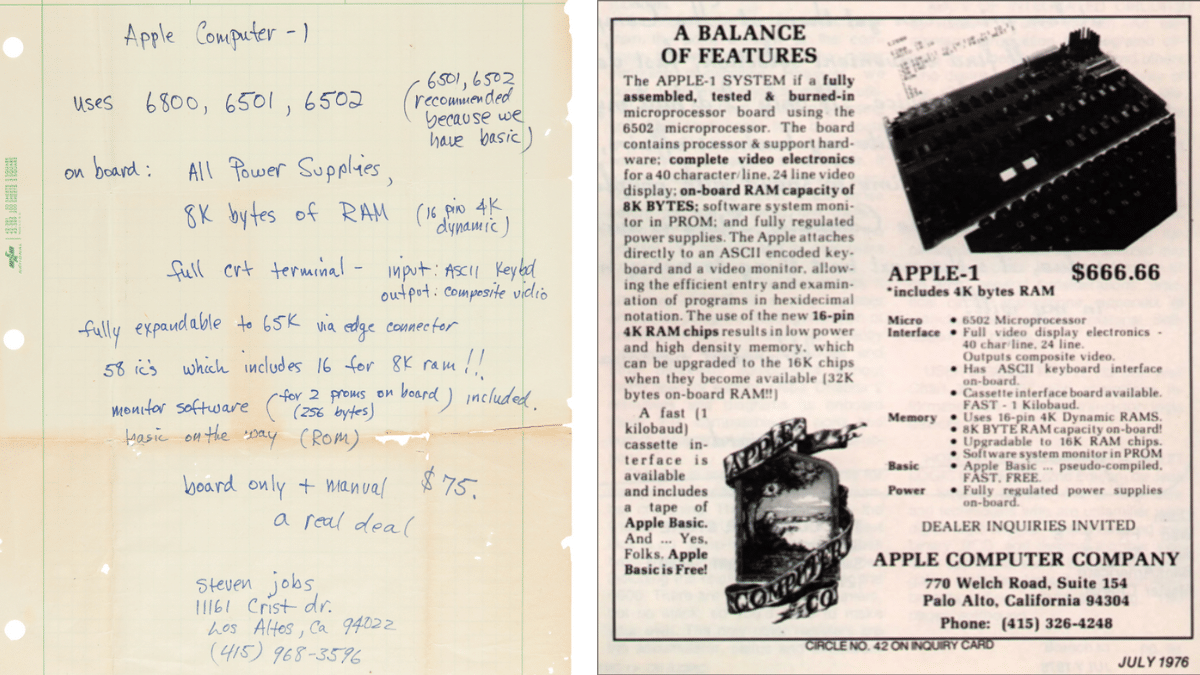 Apple Computer - 1
uses 6800, 6501, 6502
(6501, 6502
recommended
because we
have basic)
on board: All Power Supplies,
8K bytes of RAM (16 pin 4K
dynamic)
full crt terminal - input: ASCII Keybd
output: composite vidio
fully expandable to 65K via edge connector
58 ic's which includes 16 for 8K ram!!
monitor software (for 2 proms on board) included.
(256 bytes)
basic on the way (ROM)
board only + manual $75.
a real deal
steven jobs
11161 Crist dr.
Los Altos, Ca 94022
(415) 968-3596
A BALANCE
OF FEATURES
The APPLE-1 SYSTEM if a fully
assembled, tested & burned-in
microprocessor board using the
6502 microprocessor. The board
contains processor & support hard-
ware; complete video electronics
for a 40 character/line, 24 line video
display; on-board RAM capacity of
8K BYTES; software system moni-
tor in PROM; and fully regulated
power supplies. The Apple attaches
directly to an ASCII encoded key-
board and a video monitor, allow-
ing the efficient entry and examin-
ation of programs in hexidecimal
notation. The use of the new 16-pin
4K RAM chips results in low power
and high density memory, which
can be upgraded to the 16K chips
when they become available (32K
bytes on-board RAM!!)
A fast (1
kilobaud)
cassette in-
terface is
available
and includes
a tape of
Apple Basic.
And ... Yes,
Folks, Apple
Basic is Free!
APPLE
COMPUTER
CO
APPLE-1 $666.66
*includes 4K bytes RAM
Micro • 6502 Microprocessor
Interface • Full video display electronics -
40 char/line, 24 line.
Outputs composite video.
• Has ASCII keyboard interface
on-board.
• Cassette interface board available.
FAST - 1 Kilobaud.
Memory • Uses 16-pin 4K Dynamic RAMS.
• 8K BYTE RAM capacity on-board!
• Upgradable to 16K RAM chips.
• Software system monitor in PROM
Basic • Apple Basic ... pseudo-compiled,
FAST, FREE.
Power • Fully regulated power supplies
on-board.
DEALER INQUIRIES INVITED
APPLE COMPUTER COMPANY
770 Welch Road, Suite 154
Palo Alto, California 94304
Phone: (415) 326-4248
CIRCLE NO. 42 ON INQUIRY CARD
JULY 1976